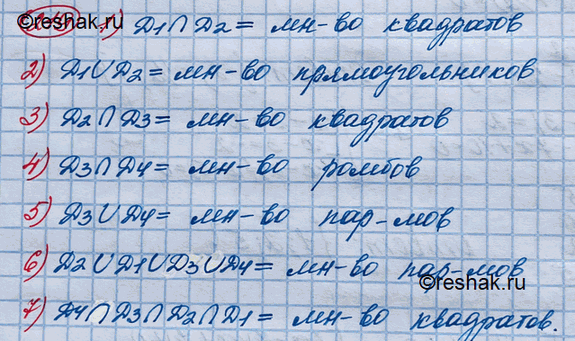 ©reshak.ru 1) D1∩D2= мн-во квадратов
2) D1∪D2= мн-во прямоугольников
3) D2∩D3= мн-во квадратов
4) D3∩D4= мн-во ромбов
5) D3∪D4= мн-во пар-мов
6) D2∪D1∪D3∪D4= мн-во пар-мов
©reshak.ru
7) D4∩D3∩D2∩D1= мн-во квадратов.